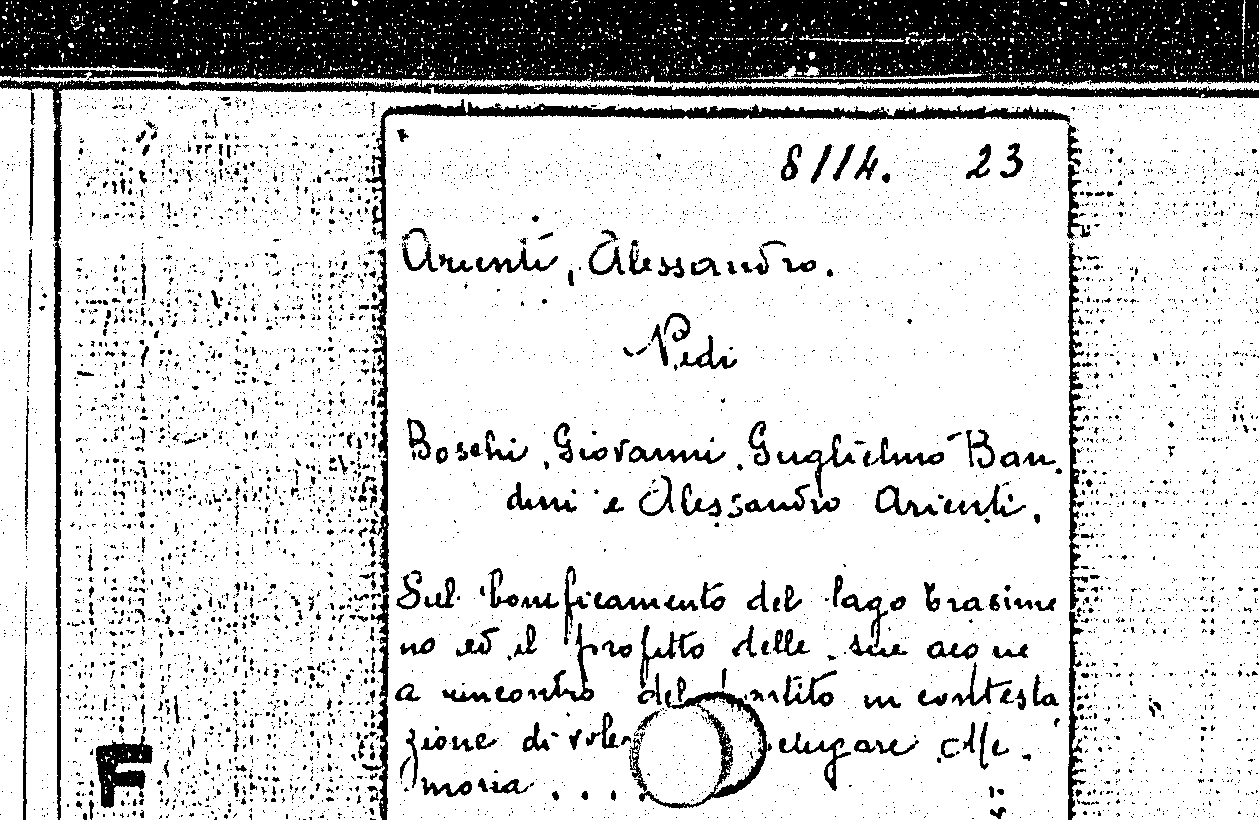 8114. 23
Arienti, Alessandro.
Vedi
Boschi, Giovanni, Guglielmo Ban.
dini e Alessandro Arienti.
Sul bonificamento del lago trasime
no ed il profitto delle sue acque
a rincontro del in contesta
zione di Me.
moria . . . .
F